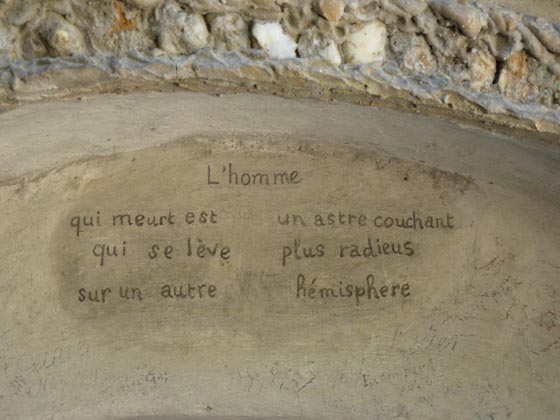 L'homme
qui meurt est un astre couchant
qui se lève plus radieus
sur un autre hémisphere